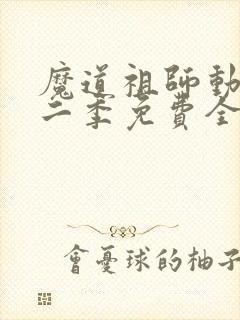 魔道祖師動
二季免費全
會憂球的柚子